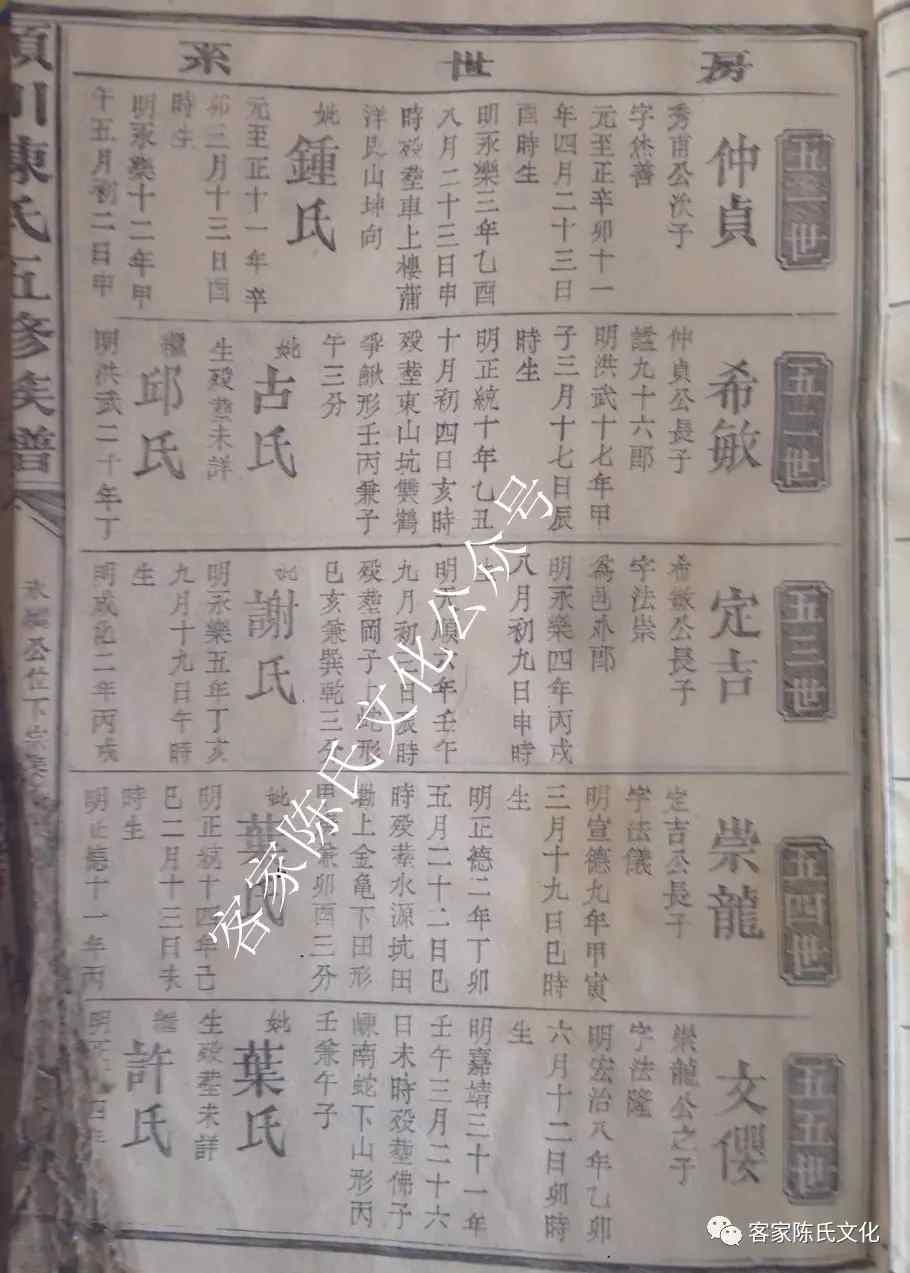 房世系
五一世
仲貞
秀甫公次子
字烋善
元至正辛卯十一
年四月二十三日
酉時生
明永樂三年乙酉
八月二十三日申
時歿塟車上樓蒲
洋艮山坤向
妣鍾氏
元至正十一年辛
卯三月十三日酉
時生
明永樂十二年甲
午五月初二日申
五二世
希敏
仲貞公長子
諱九十六郎
明洪武十七年甲
子三月十七日辰
時生
明正統十年乙丑
十月初四日亥時
歿塟東山坑雙鶴
爭鰍形壬丙兼子
午三分
妣古氏
生歿塟未詳
繼邱氏
明洪武二十年丁
五三世
定吉
希敏公長子
字法崇
為邑永郎
明永樂四年丙戌
八月初九日申時
生
明天順六年壬午
九月初三日辰時
歿塟岡子上蛇形
巳亥兼巽乾三分
妣謝氏
明永樂五年丁亥
九月十九日午時
生
明成化二年丙戌
五四世
崇龍
定吉公長子
字法儀
明宣德九年甲寅
三月十九日巳時
生
明正德二年丁卯
五月二十二日巳
時歿塟水源坑田
墈上金亀下田形
兼卯酉三分
妣葉氏
明正統十四年己
巳二月十三日未
時生
明正德十一年丙
五五世
文儒
崇龍公之子
字法隆
明宏治八年乙卯
六月十二日卯時
生
明嘉靖三十一年
壬午三月二十六
日未時歿塟佛子
崠南蛇下山形丙
壬兼午子
妣葉氏
生歿塟未詳
繼許氏
川陳氏五修族譜
客家陈氏文化公众号
客家陈氏文化